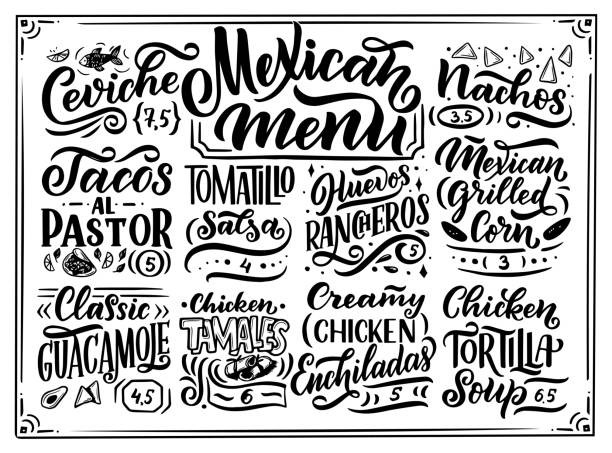 Mexican
menu
Ceviche
{7,5}
Nachos
3,5
Tacos
AL
PASTOR
(5)
TOMATILLO
Salsa
4
Huevos
RANCHEROS
5
Mexican
Grilled
Corn
(3)
<<Classic>>
GUACAMOJE
4,5
Chicken
TAMALES
6
Creamy
(CHICKEN)
Enchiladas
5
Chicken
TORTILLA
Soup 6,5